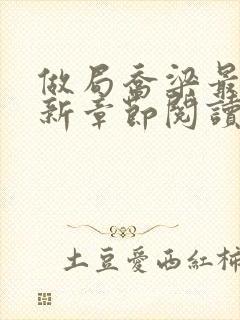 做局喬梁最
新章節閱讀
土豆愛西紅柿